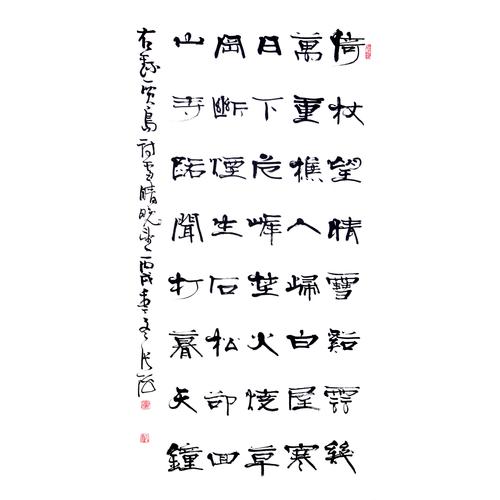 倚杖望晴雪谿雲幾
萬重樵人歸白屋寒
日下危峰埜火燒草
岡斷煙生石松卻回
山寺路聞打暮天鐘
右錄賈島詩雪晴晚望丙戌